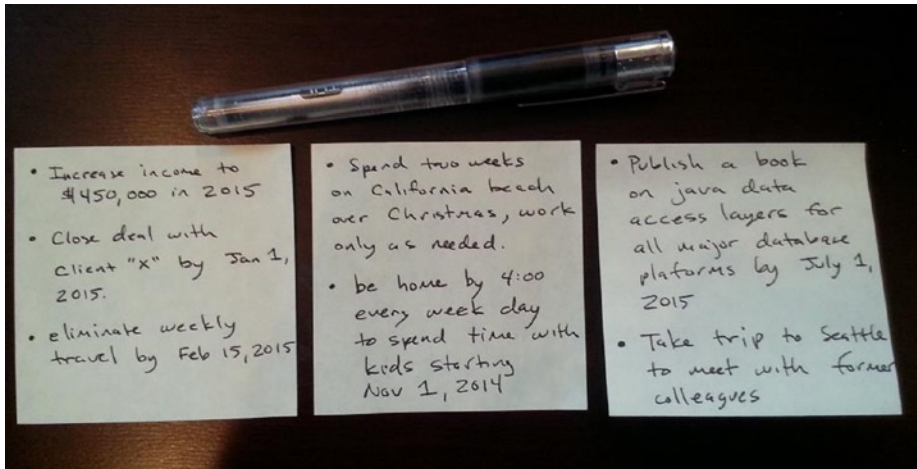 • Increase income to
$450,000 in 2015
• Close deal with
Client "X" by Jan 1,
2015.
• eliminate weekly
travel by Feb 15, 2015
• Spend two weeks
on California beach
over Christmas, work
only as needed.
• be home by 4:00
every week day
to spend time with
kids starting
Nov 1, 2014
• Publish a book
on java data
access layers for
all major database
plaforms by July 1,
2015
• Take trip to Seattle
to meet with former
colleagues